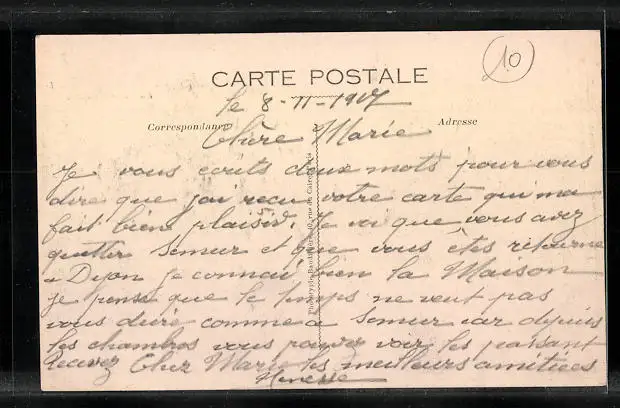 10
CARTE POSTALE
le 8-11-1917
Correspondance
Adresse
Chère Marie
Je vous écrits deux mots pour vous
dire que j'ai recu votre carte qui ma
fait bien plaisir. Je vu que vous avez
quitter Semur et que vous êtes retourne
a Dijon je connai bien la Maison
je pense que le temps ne veut pas
vous duré comme a Semur car depuis
les chambres vous pouvez voir les passant
Recevez Cher Marie les meilleurs amitiées